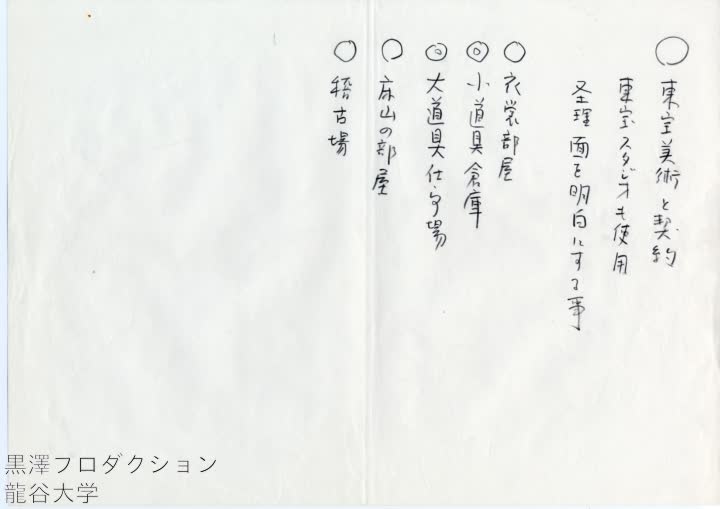 ○ 東宝美術と契約
東宝スタジオも使用
圣理面を明白にする事
○ 衣裳部屋
◎ 小道具倉庫
◎ 大道具仕事場
○ 床山の部屋
○ 稽古場
黒澤フロダクション
龍谷大学